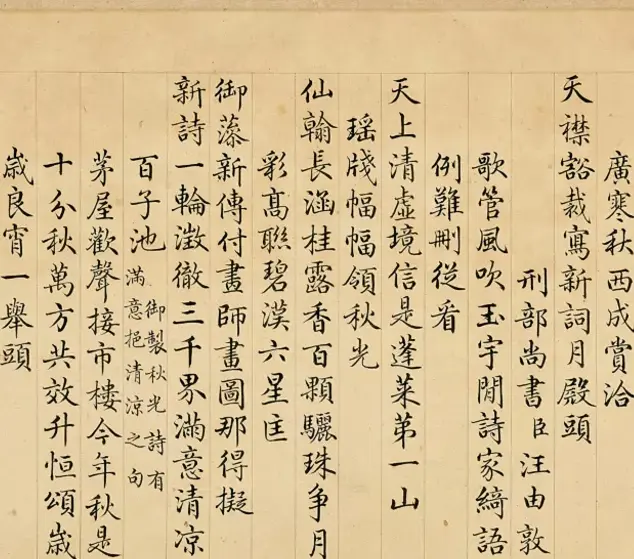 廣寒秋西成賞洽
天襟豁裁寫新詞月殿頭
刑部尚書臣汪由敦
歌管風吹玉宇閒詩家綺語
例難刪從看
天上清虛境信是蓬萊第一山
瑶牋幅幅領秋光
仙翰長涵桂露香百顆驪珠争月
彩髙聯碧漢六星匡
御藻新傳付畫師畫圖那得擬
新詩一輪澂徹三千界滿意清凉
百子池
御製秋光詩有
滿意挹清涼之句
茅屋歡聲接市樓今年秋是
十分秋萬方共效升恒頌歲
歲良宵一舉頭